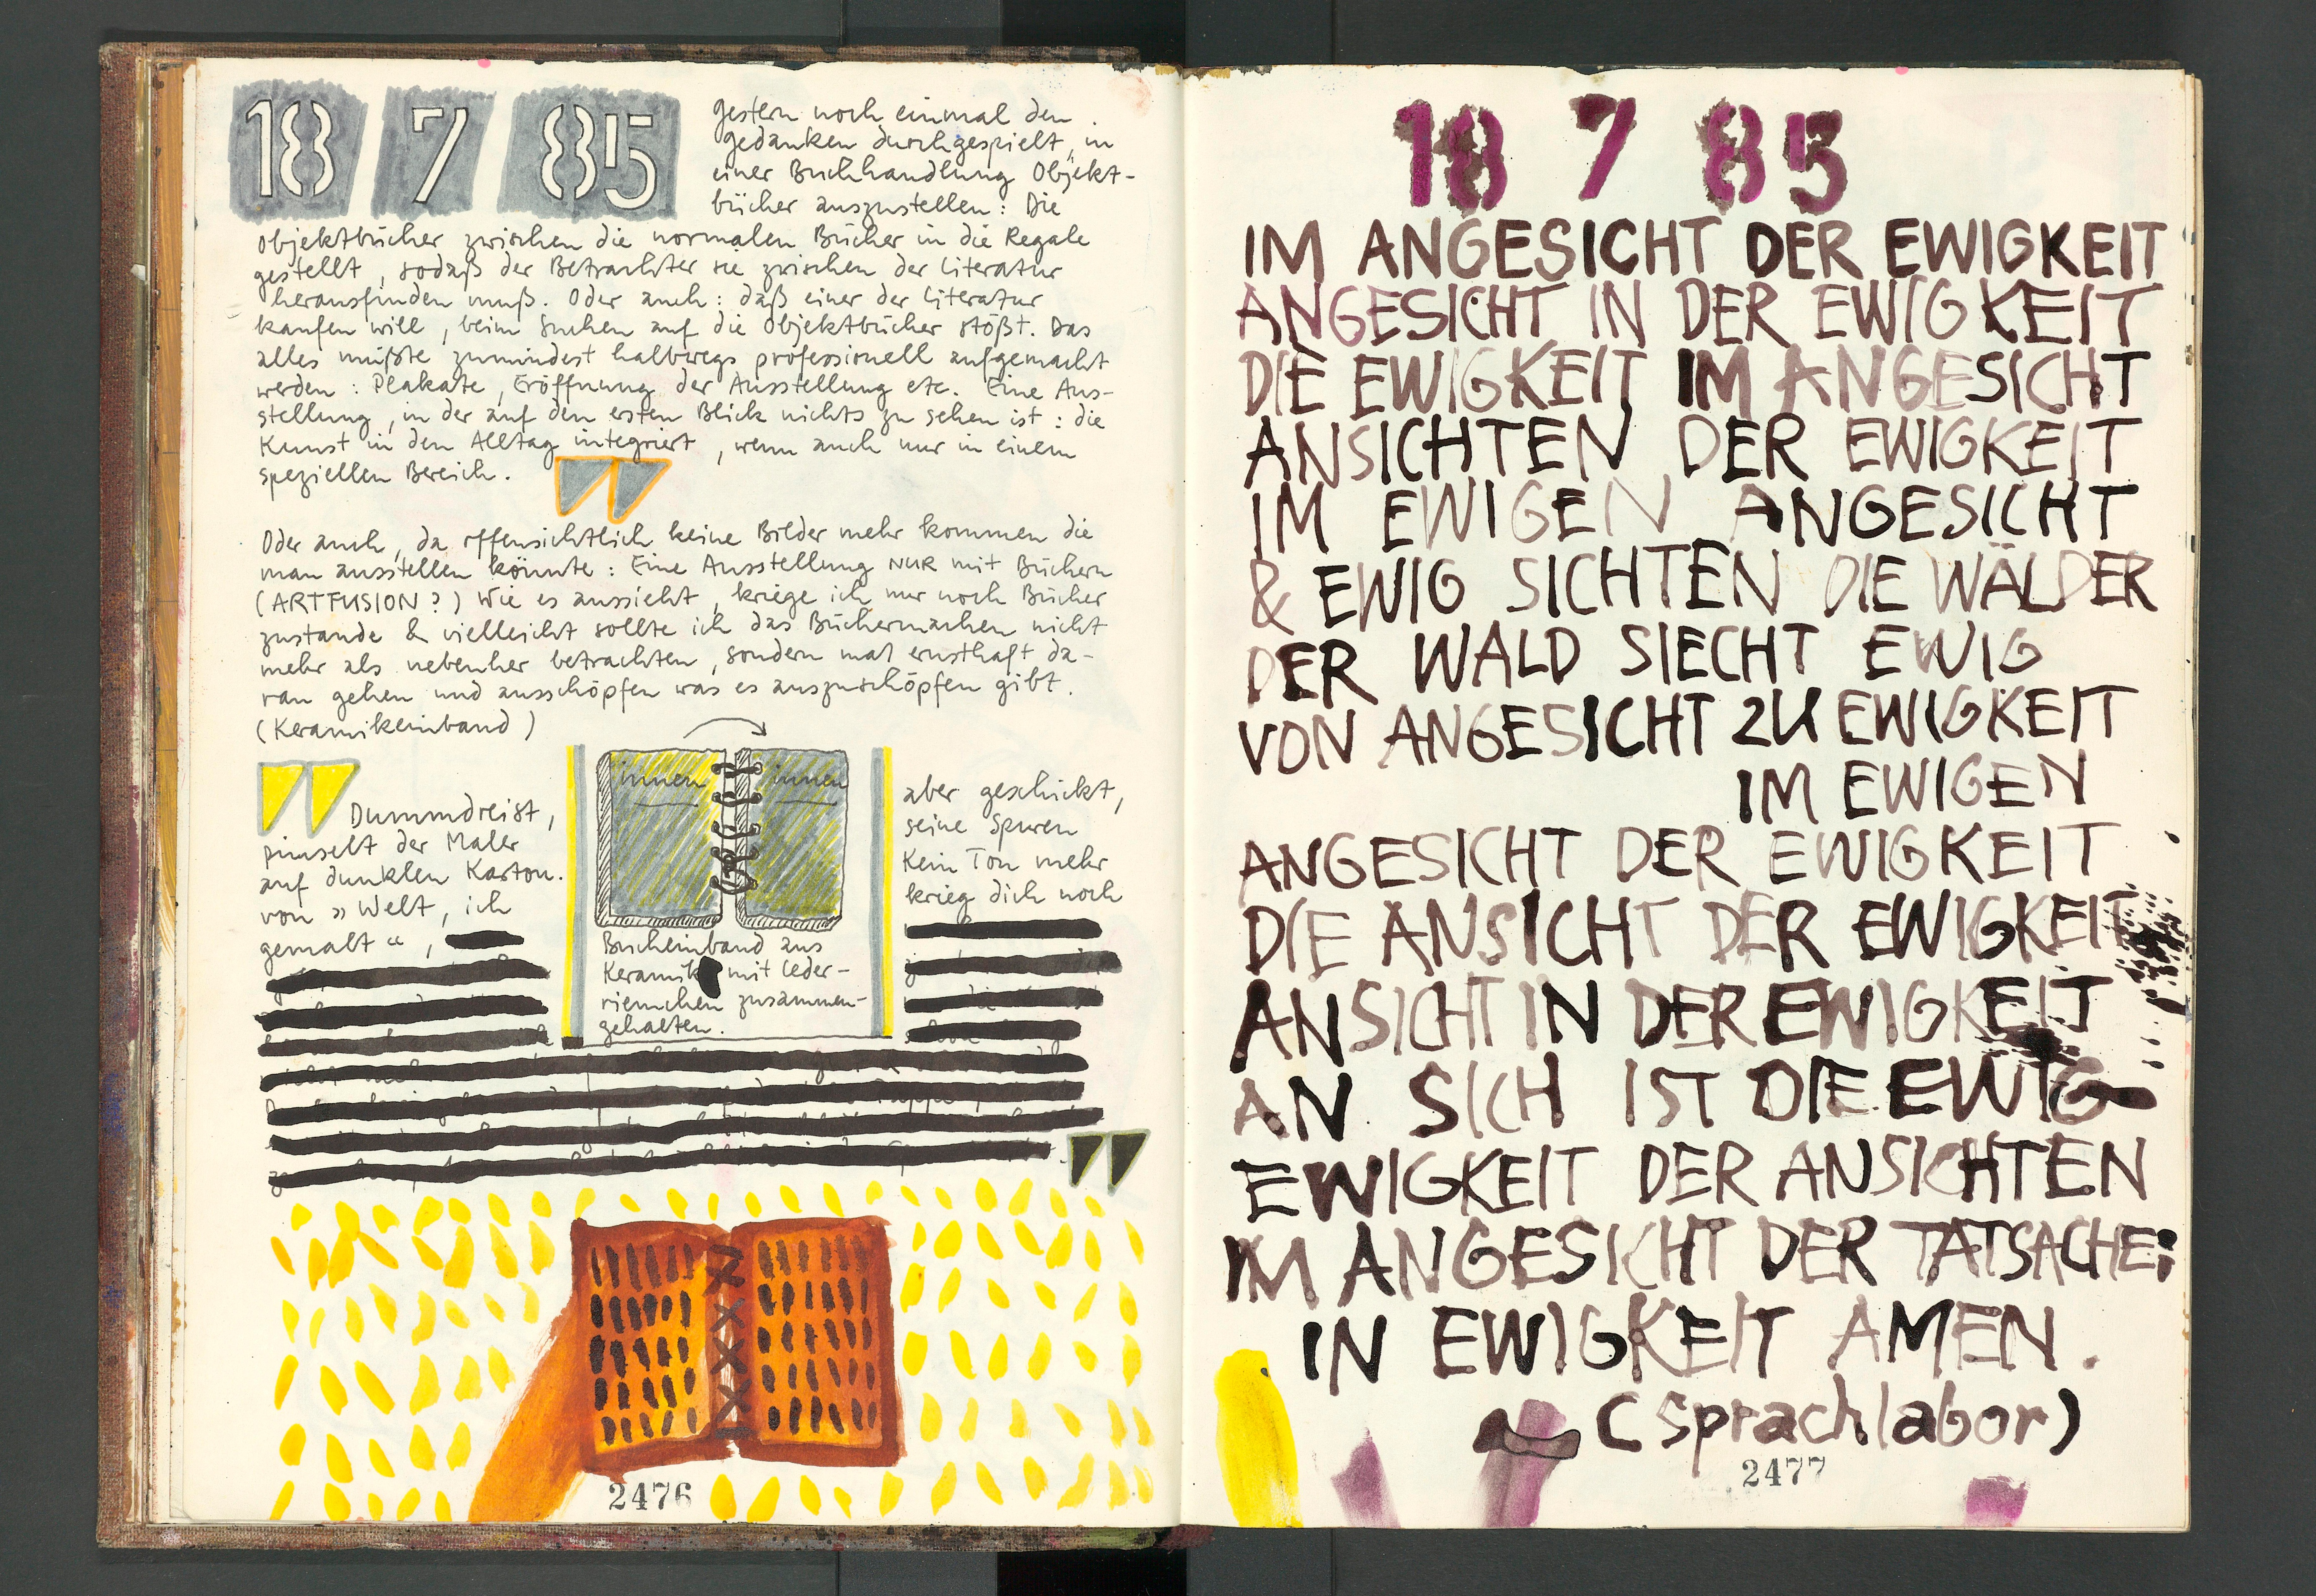 18 7 85
gestern noch einmal den
gedanken durchgespielt, in
einer Buchhandlung Objekt-
bücher auszustellen: Die
Objektbücher zwischen die normalen Bücher in die Regale
gestellt, sodaß der Betrachter sie zwischen der Literatur
herausfinden muß. Oder auch: daß einer der Literatur
kaufen will, beim Suchen auf die Objektbücher stößt. Das
alles müßte zumindest halbwegs professionell aufgemacht
werden: Plakate, Eröffnung der Ausstellung etc. Eine Aus-
stellung, in der auf den ersten Blick nichts zu sehen ist: die
Kunst in den Alltag integriert, wenn auch nur in einem
speziellen Bereich.
Oder auch, da offensichtlich keine Bilder mehr kommen die
man ausstellen könnte: Eine Ausstellung NUR mit Büchern
(ARTFUSION?) Wie es aussieht, kriege ich nur noch Bücher
zustande & vielleicht sollte ich das Büchermachen nicht
mehr als nebenher betrachten, sondern mal ernsthaft da-
ran gehen und ausschöpfen was es auszuschöpfen gibt.
(Keramikeinband)
Dummdreist,
pinselt der Maler
auf dunklen Karton.
von »Welt, ich
gemalt“,
innen innen
Bucheinband aus
Keramik mit Leder-
riemchen zusammen-
gehalten.
aber geschickt,
seine Spuren
Kein Ton mehr
krieg dich noch
2476
18 7 85
IM ANGESICHT DER EWIGKEIT
ANGESICHT IN DER EWIGKEIT
DIE EWIGKEIT IM ANGESICHT
ANSICHTEN DER EWIGKEIT
IM EWIGEN ANGESICHT
& EWIG SICHTEN DIE WÄLDER
DER WALD SIECHT EWIG
VON ANGESICHT ZU EWIGKEIT
IM EWIGEN
ANGESICHT DER EWIGKEIT
DIE ANSICHT DER EWIGKEIT
ANSICHT IN DER EWIGKEIT
AN SICH IST DIE EWIG-
EWIGKEIT DER ANSICHTEN
IM ANGESICHT DER TATSACHE:
IN EWIGKEIT AMEN.
(Sprachlabor)
2477